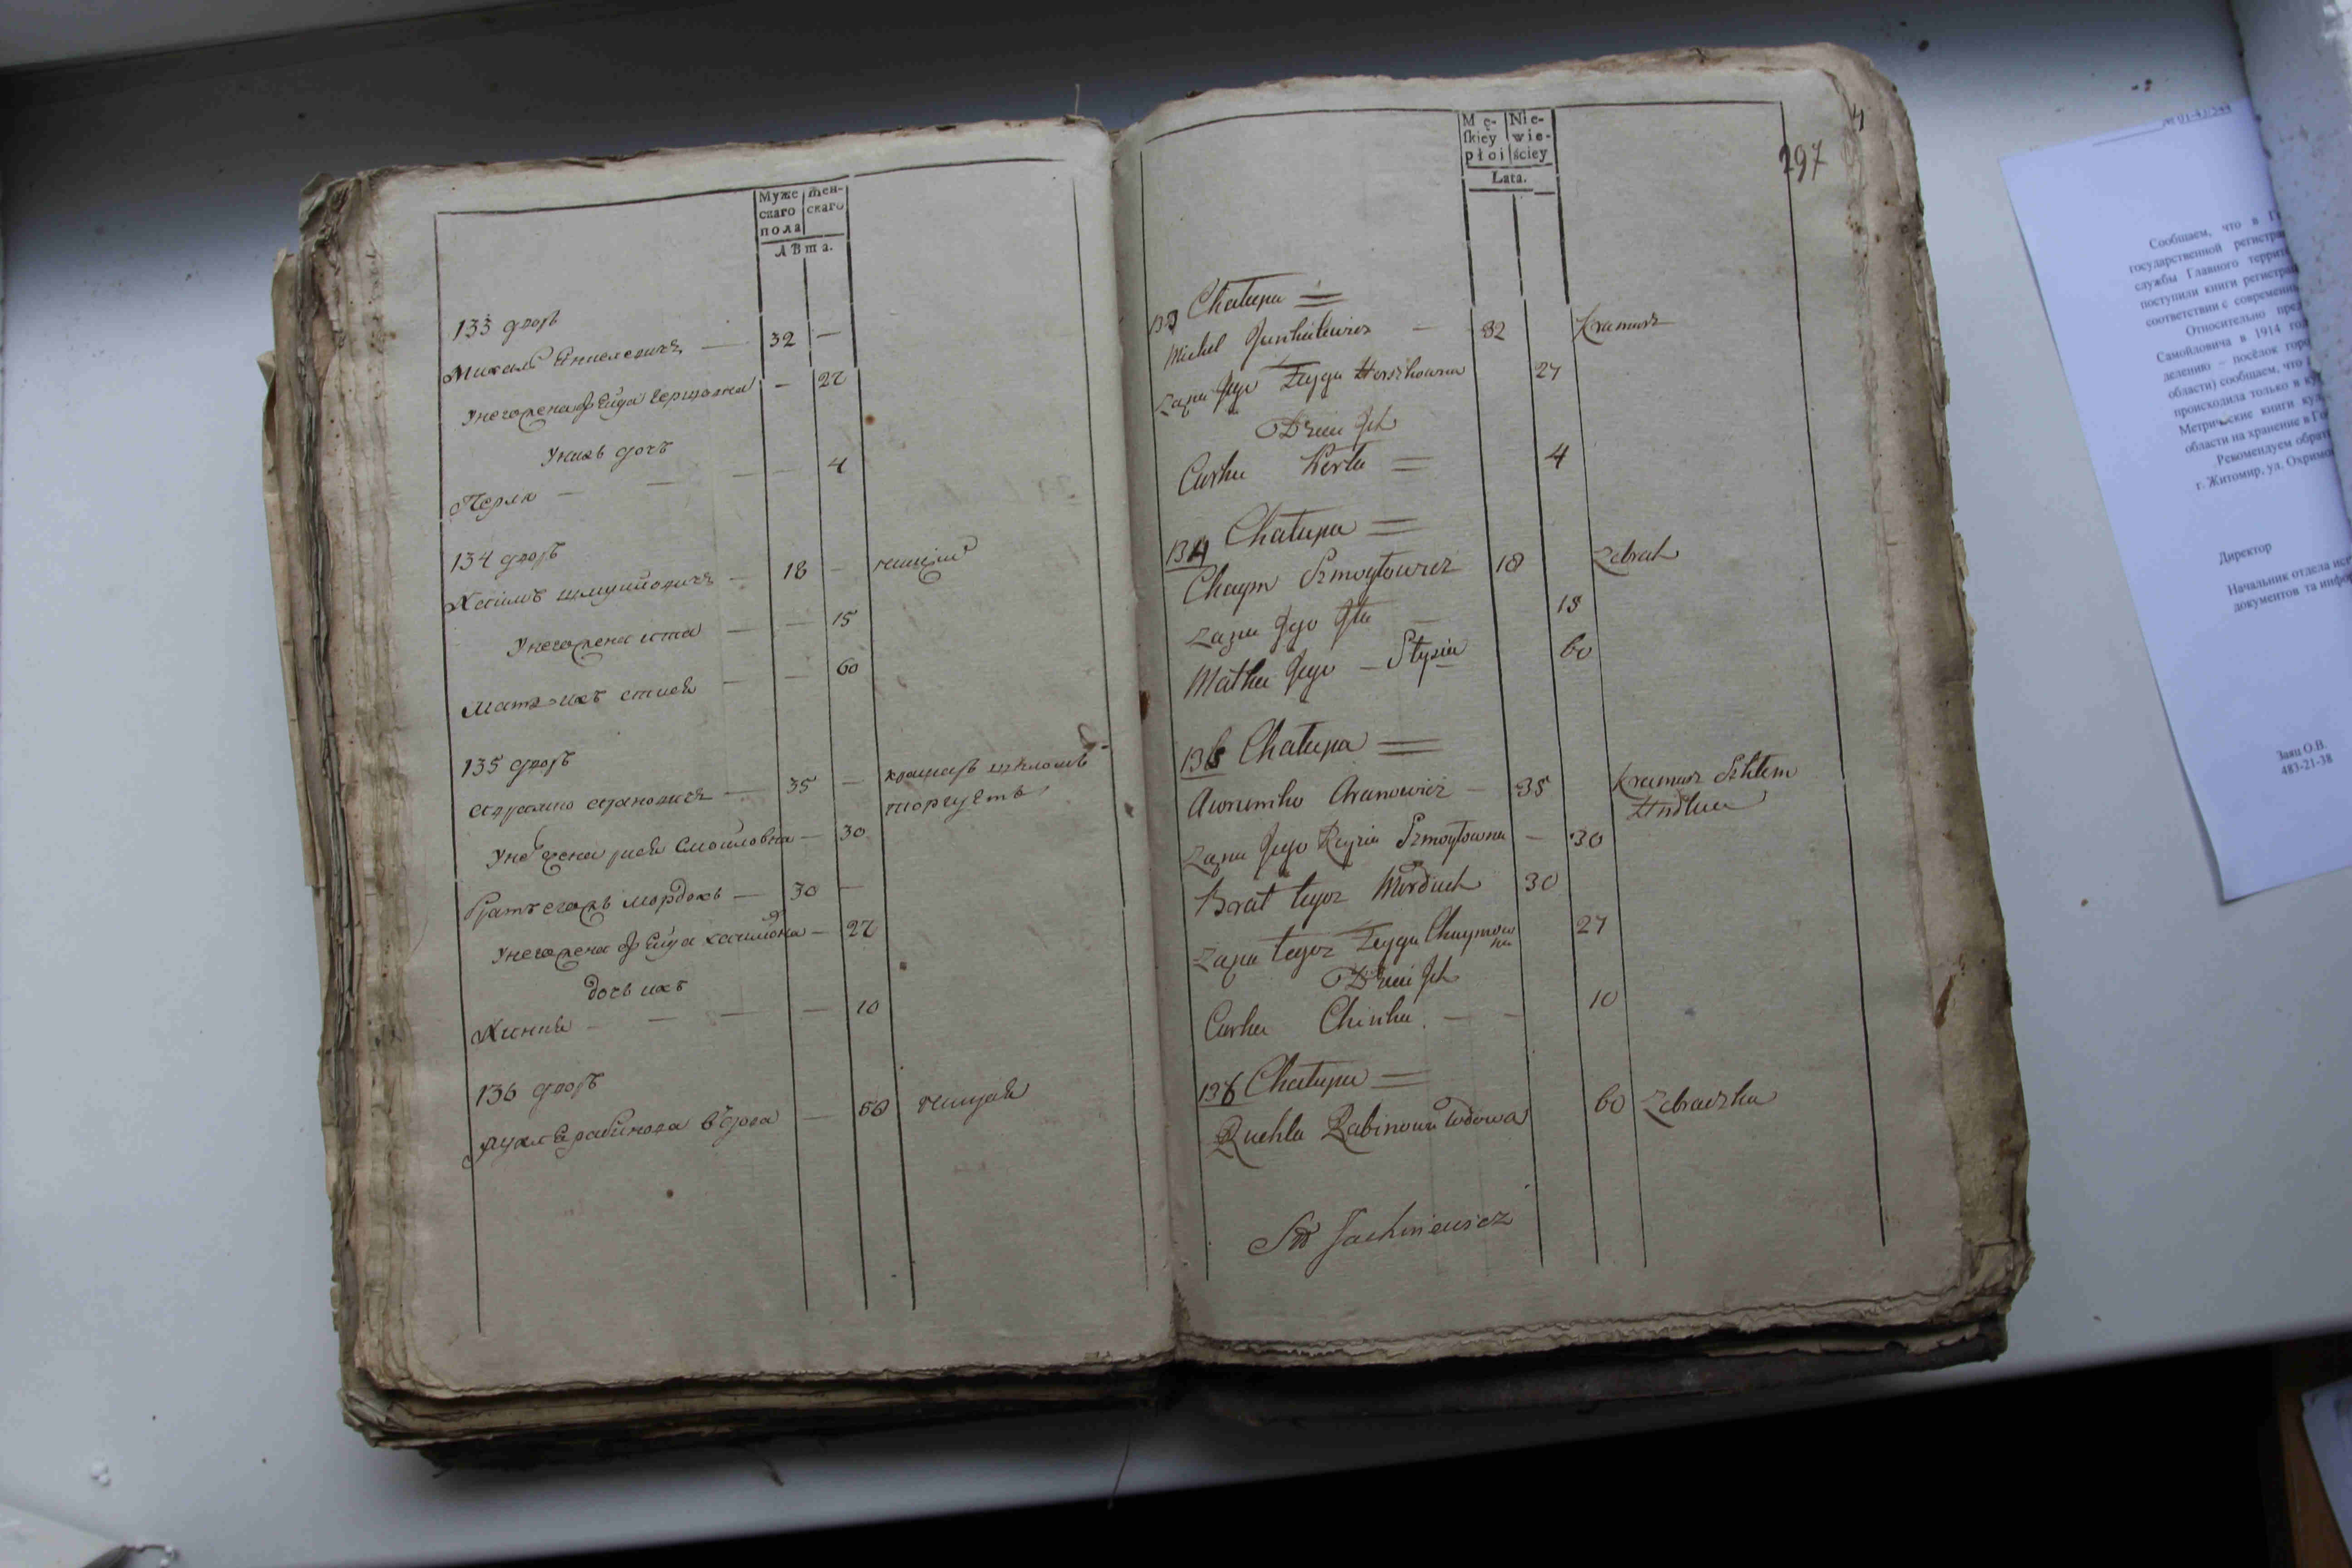 Муже
скаго
пола
жен-
скаго
лѣта.
133 дворъ
Михель Янкелевичъ — 32 —
У него жена Фейга Гершовна — 27
У нихъ дочь
Перля — — — — 4
134 дворъ
Хаимъ Шмуйловичъ — 18 — нищій
У него жена Ита — — 15
Мать ихъ Стися — — 60
135 дворъ
Аврамко Ароновичъ — 35 — крамарь шкломъ
торгуетъ
У него жена Рися Смойловна — 30
Братъ егожъ Мордохъ — 30 —
У него жена Фейга Хаимовна — 27
дочь ихъ
Хинка — — — — 10
136 дворъ
Рухля Рабинова вдова — 60 нищая
Mę-
skiey
płci
Nie-
wie-
ściey
Lata.
297
133 Chałupa =
Michel Jankielewicz — 32 Kramarz
Zona Jego Feyga Herszkowna 27
Dzieci Ich
Curka Perla = 4
134 Chałupa =
Chaym Szmoyłowicz 18 Zebrak
Zona Jego Ita — 15
Matka Jego — Stysia 60
135 Chałupa =
Awrumko Aranowicz — 35 Kramarz Szkłem
Handluie
Zona Jego Reyzia Szmoyłowna — 30
Brat tegoz Morduch 30
Zona tegoz Feyga Chaymow
na 27
Dzieci Ich
Curka Chinka — — 10
136 Chałupa =
Ruchla Rabinowa Wdowa 60 Zebraczka
Сообщаем, что в
государственной
службы Главного
поступили книги
соответствии с
Относительно
Самойловича в 1914
делению – посёлок
области) сообщаем, что
происходила только в
Метрические книги
области на хранение в
Рекомендуем
г. Житомир, ул.
Директор
Начальник отдела
документов та
Заяц О.В.
483-21-38